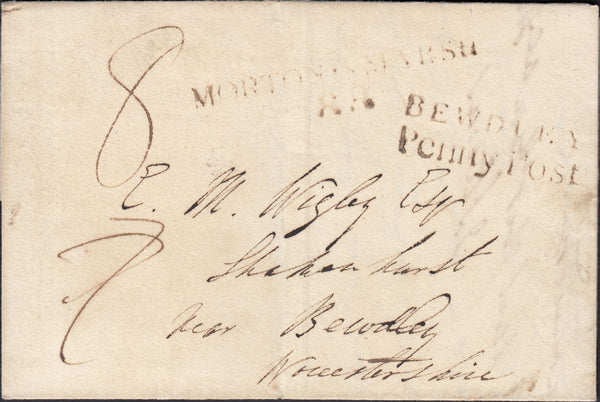 8
MORTON IN MARSH
BEWDLEY
Penny Post
E. M. Wigley Esqr
Shakenhurst
near Bewdley
Worcestershire